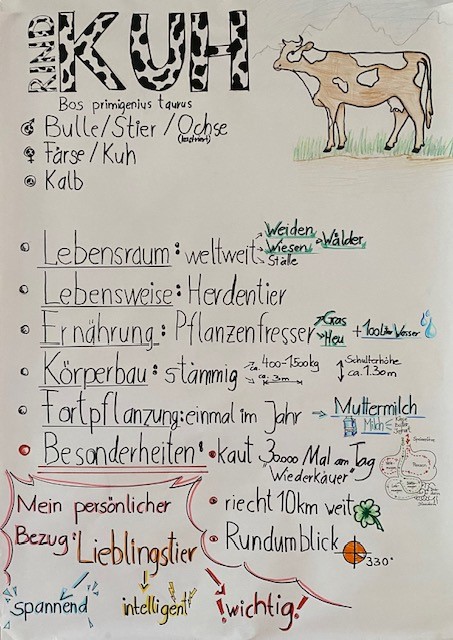 RIND
KUH
Bos primigenius taurus
Bulle/Stier/Ochse
(kastriert)
Färse/Kuh
Kalb
Lebensraum: weltweit
Weiden
Wiesen
Wälder
Ställe
Lebensweise: Herdentier
Ernährung: Pflanzenfresser
Gras
Heu
+ 100 Liter Wasser
Körperbau: stämmig
ca. 400-1500kg
ca. 3m
Schulterhöhe
ca. 1.30m
Fortpflanzung: einmal im Jahr → Muttermilch
Milch
Käse
Butter
Besonderheiten: • kaut 30000 Mal am Tag
"Wiederkäuer"
• riecht 10km weit
• Rundumblick
330°
Mein persönlicher
Bezug: Lieblingstier
spannend
intelligent
!wichtig!